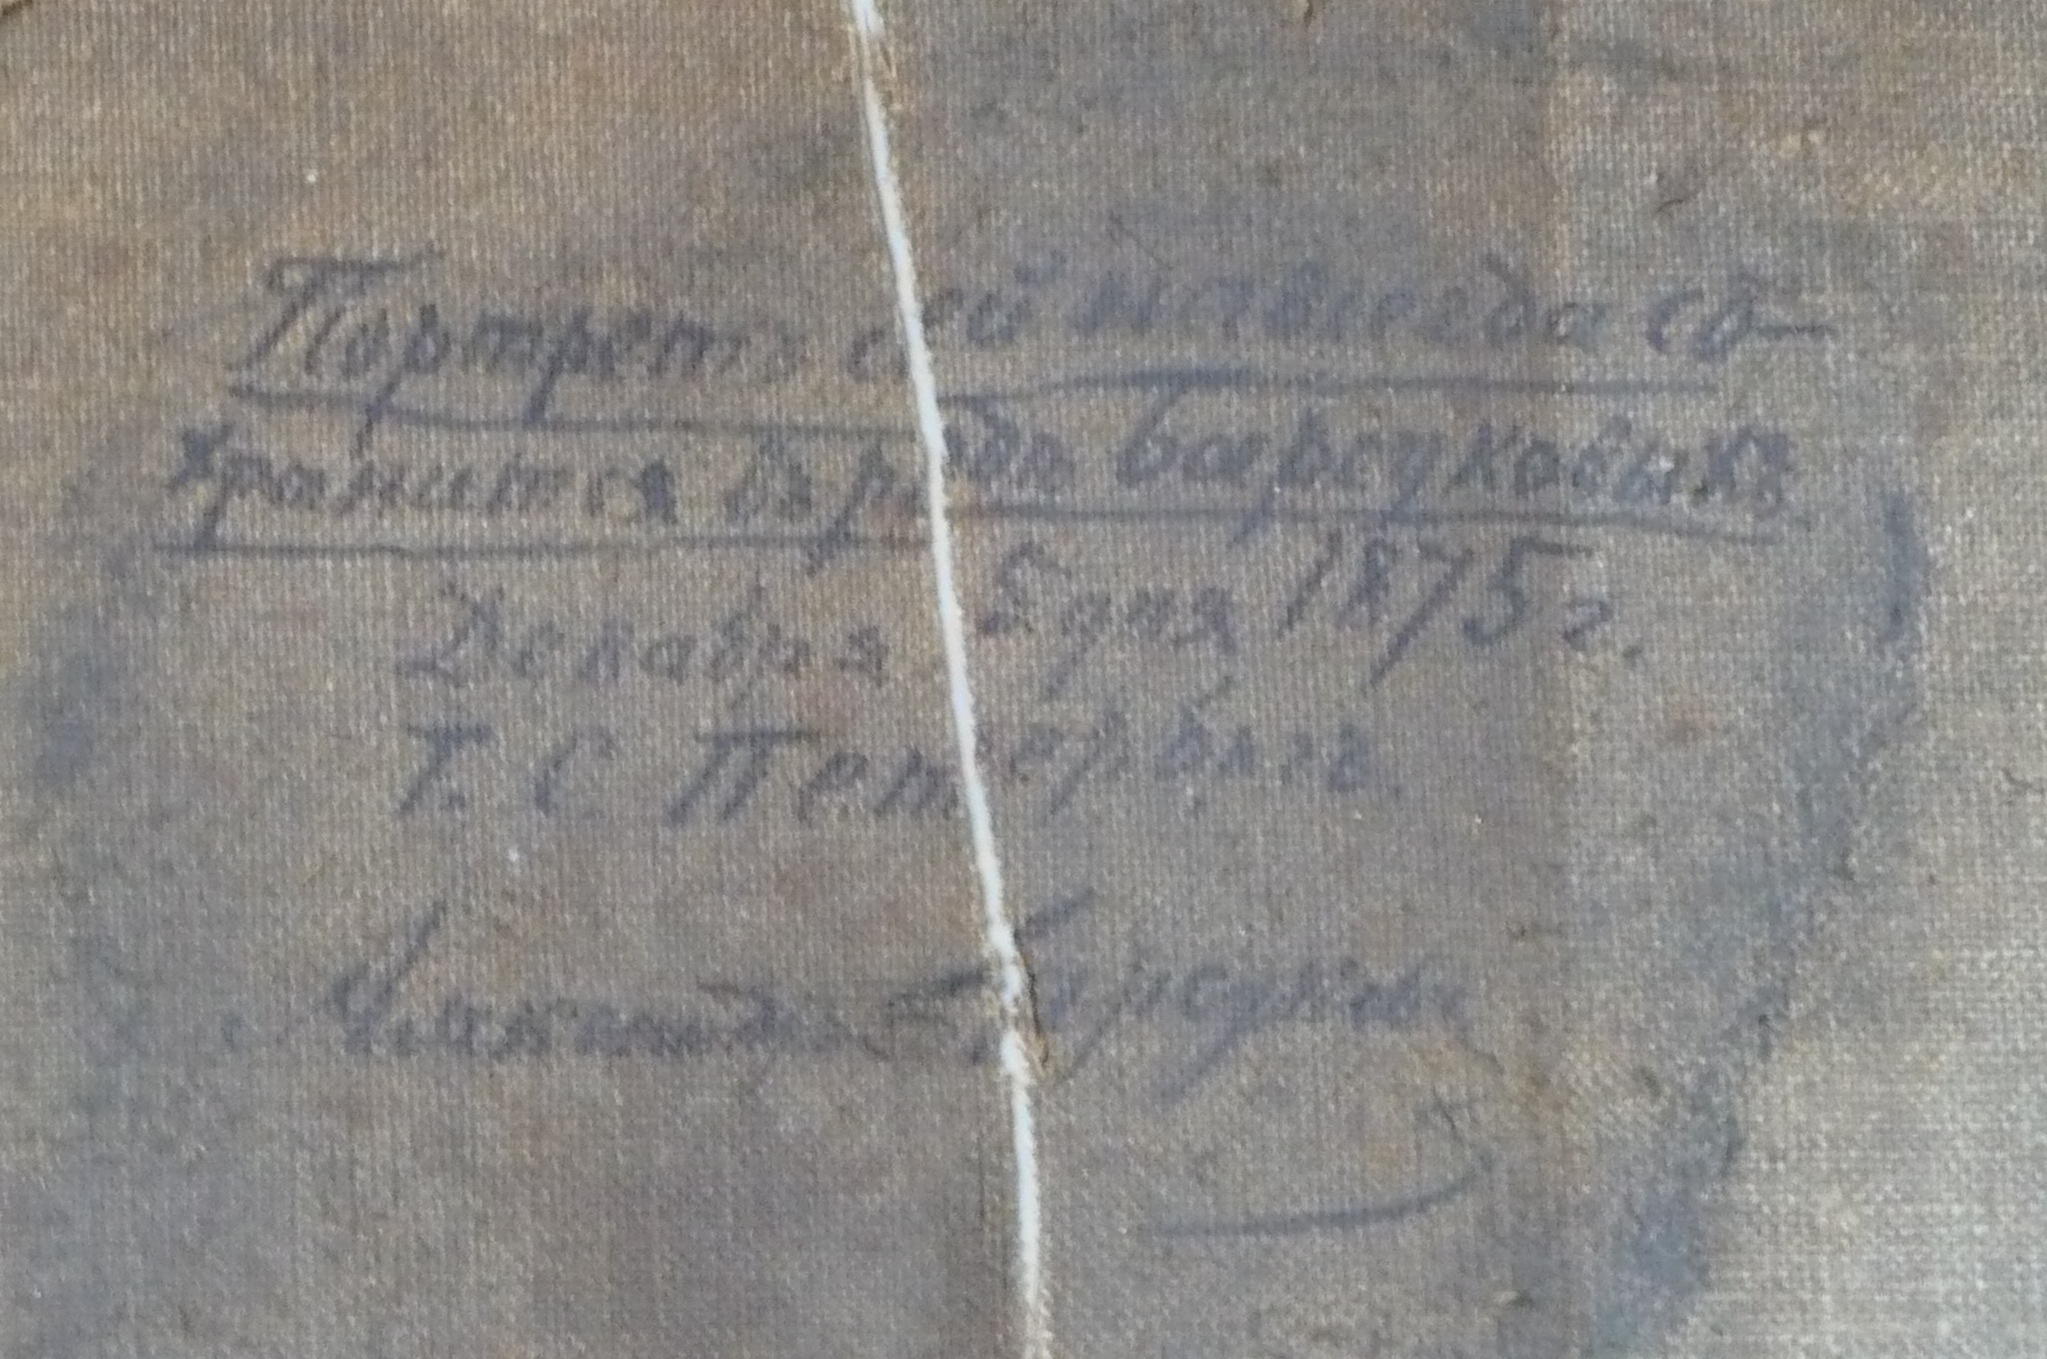 Портретъ сей навсегда со-
хранится въ роде Барсуковыхъ
Декабря 5 дня 1875 г.
Г. С Петербургъ
Барсуковъ